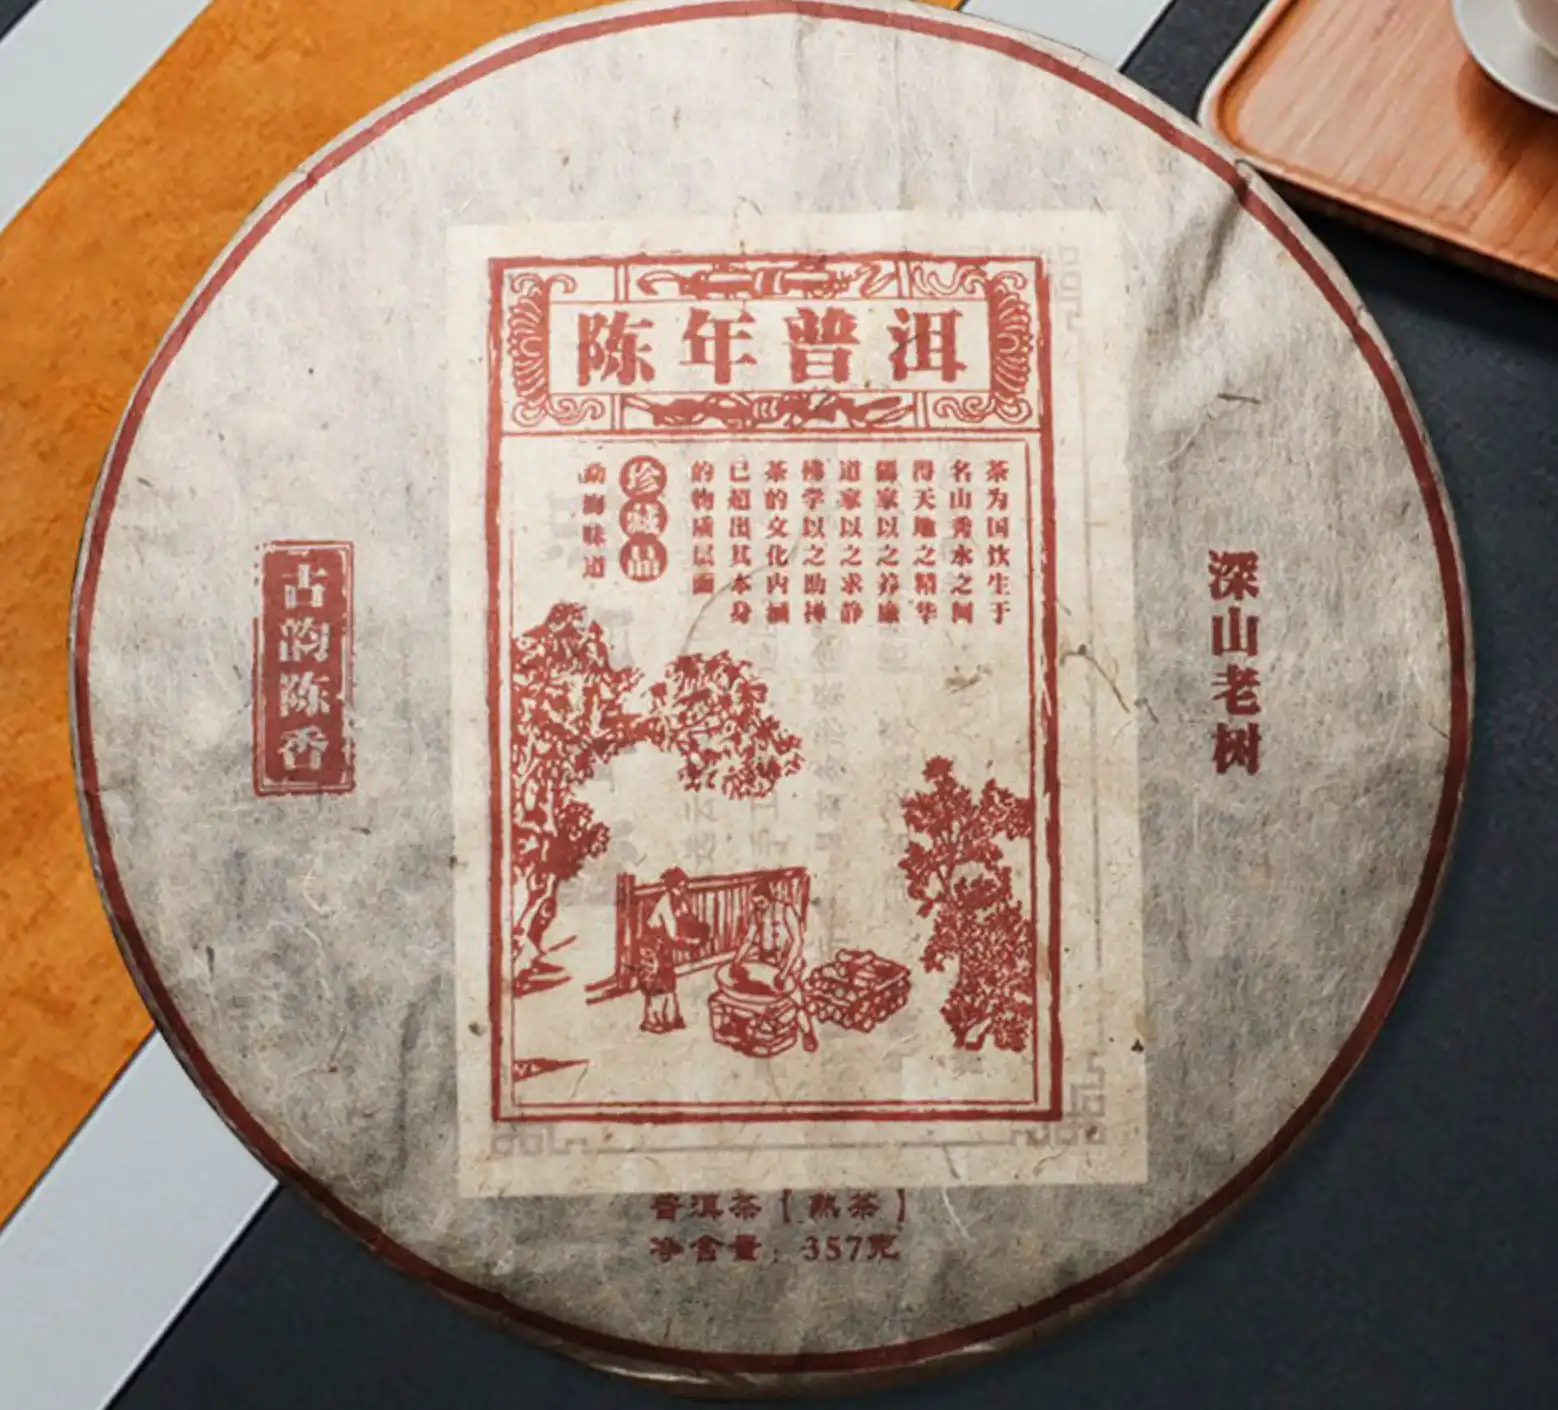 陈年普洱
茶为国饮生于
名山秀水之间
得天地之精华
儒家以之养廉
道家以之求静
佛学以之助禅
茶的文化内涵
已超出其本身
的物质层面
珍藏品
勐海味道
深山老树
古韵陈香
普洱茶【熟茶】
净含量：357克